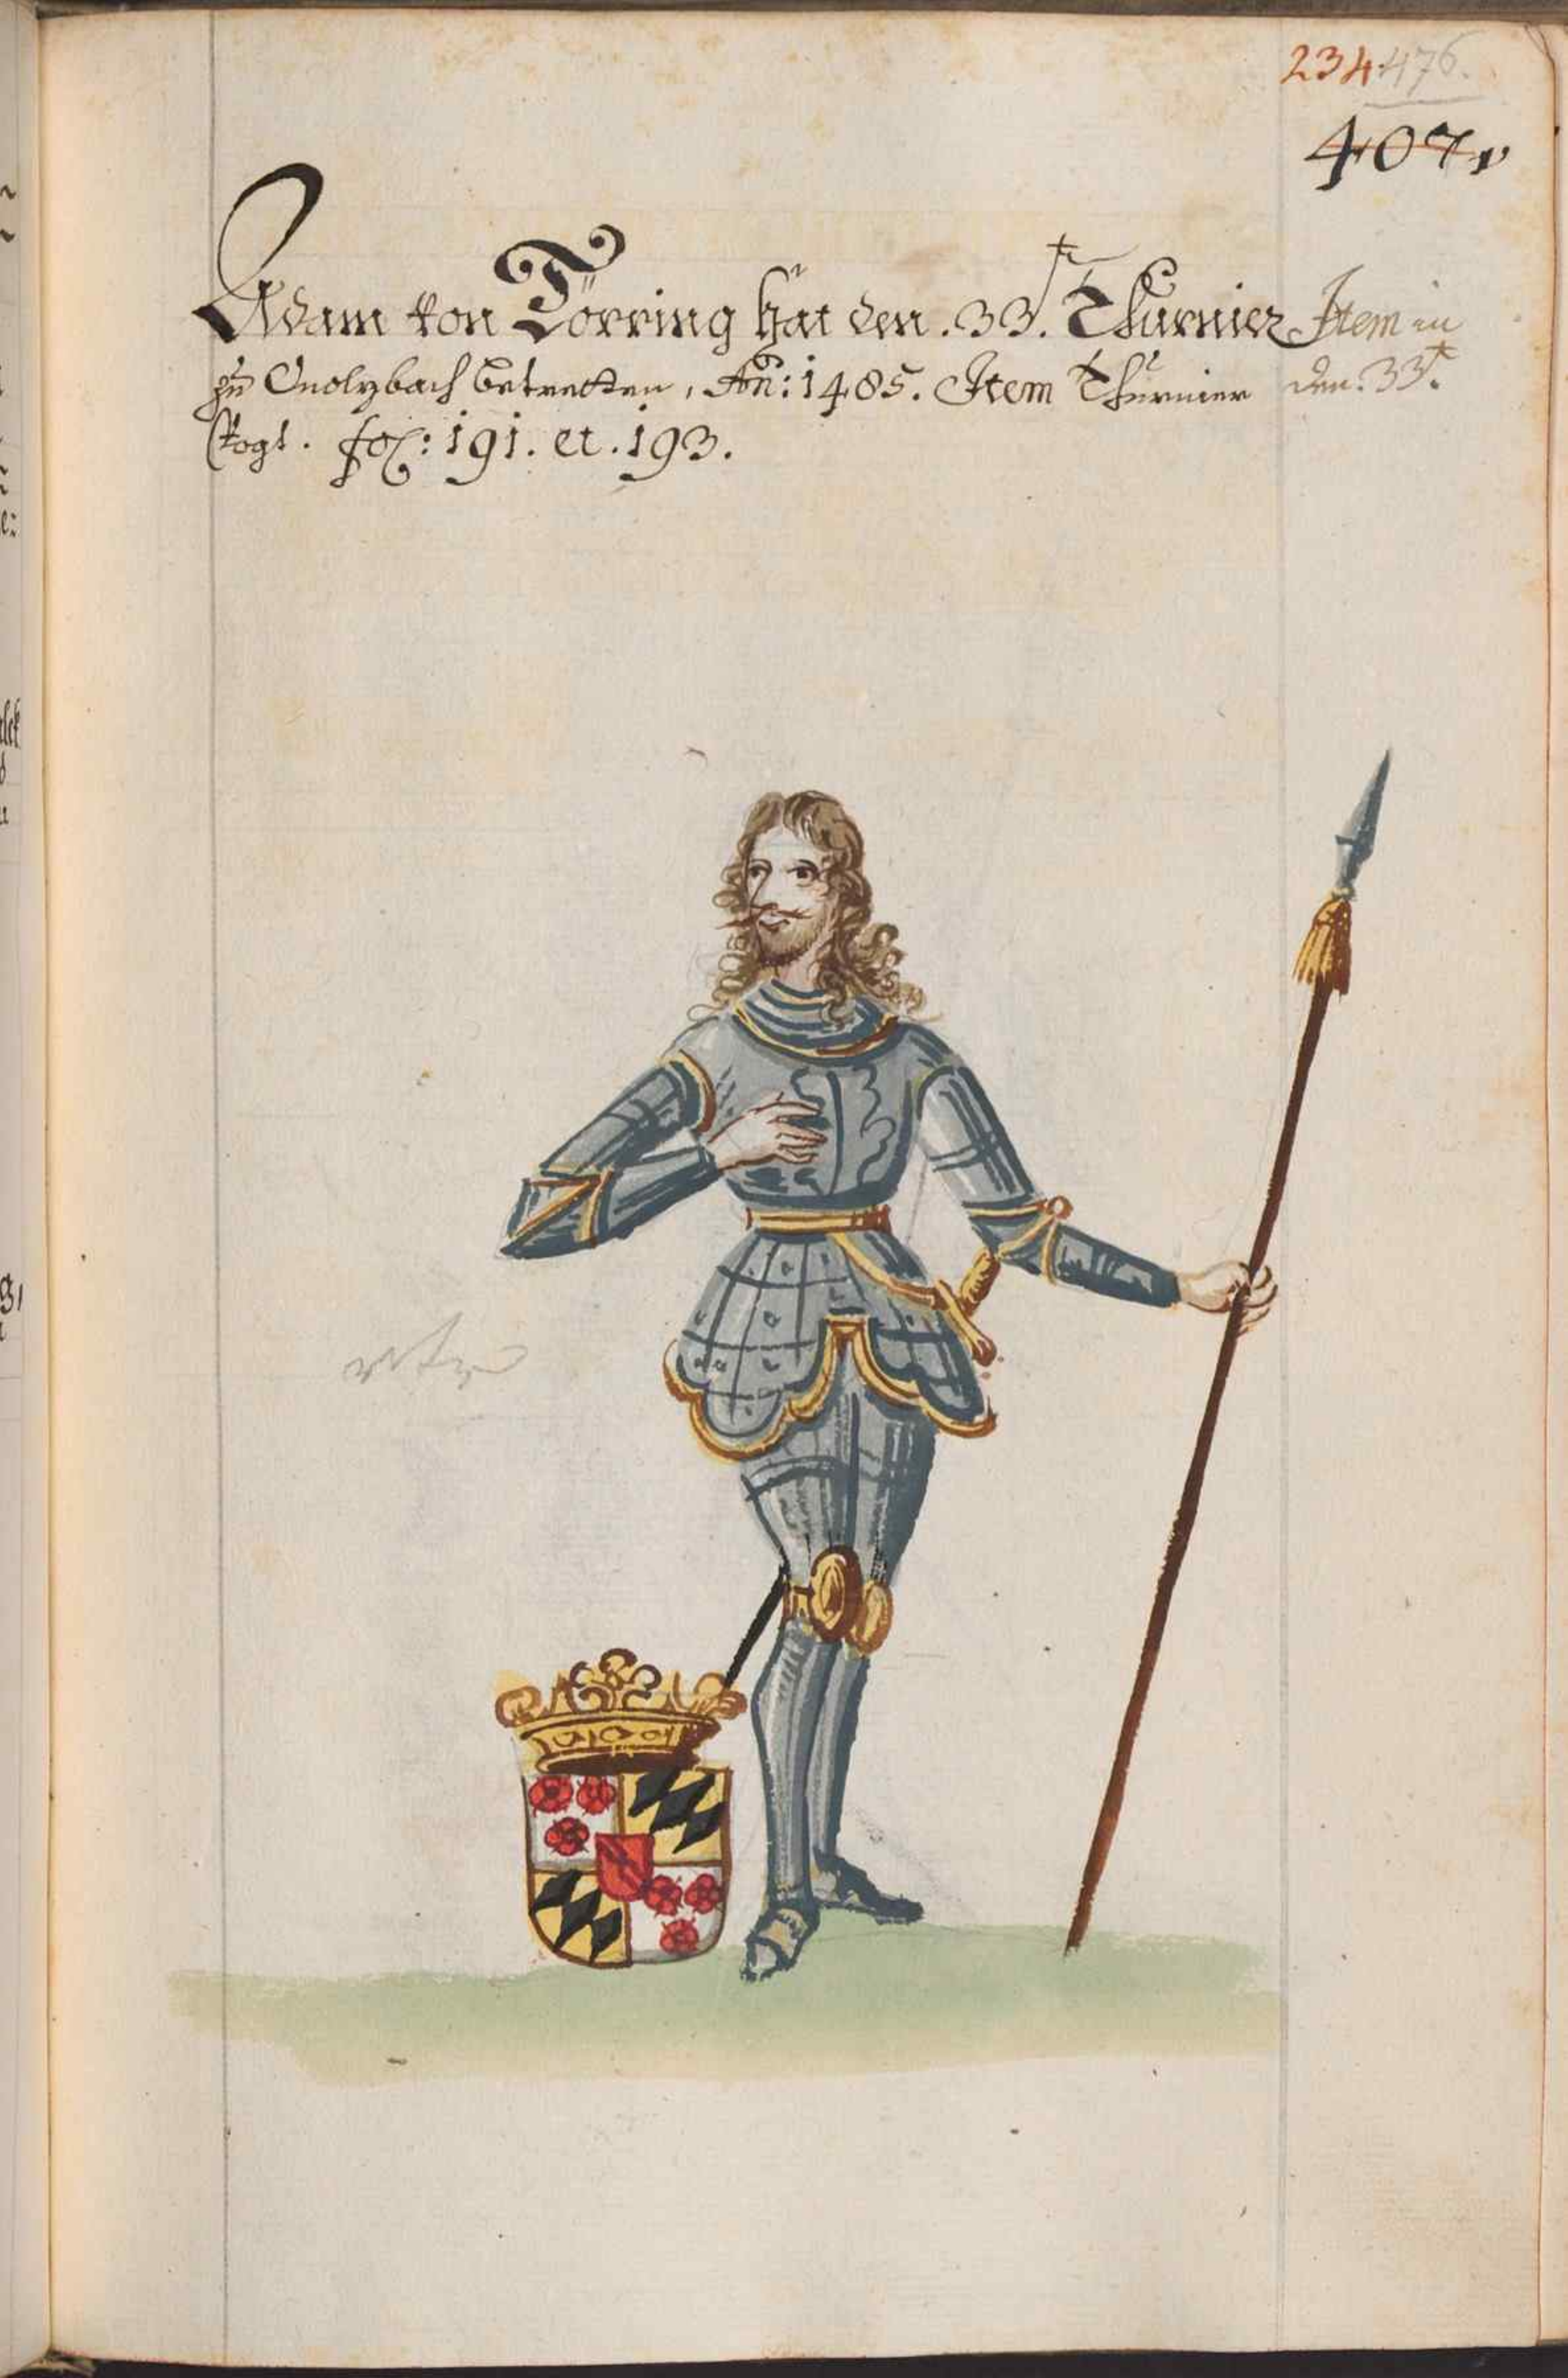 234 476.
407
Adam von Törring hat den .33.t Thurnier Item in
zu Onolzbach betretten, An: 1485. Item Thurnier den. 33t.
Vogl. fol: 191. et. 193.